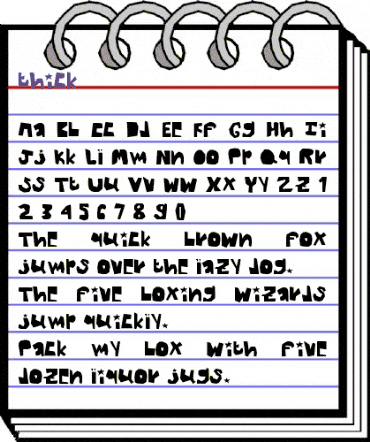 thick
Aa Bb Cc Dd Ee Ff Gg Hh Ii
Jj Kk Ll Mm Nn Oo Pp Qq Rr
Ss Tt Uu Vv Ww Xx Yy Zz 1
2 3 4 5 6 7 8 9 0
The quick brown fox
jumps over the lazy dog.
The five boxing wizards
jump quickly.
Pack my box with five
dozen liquor jugs.